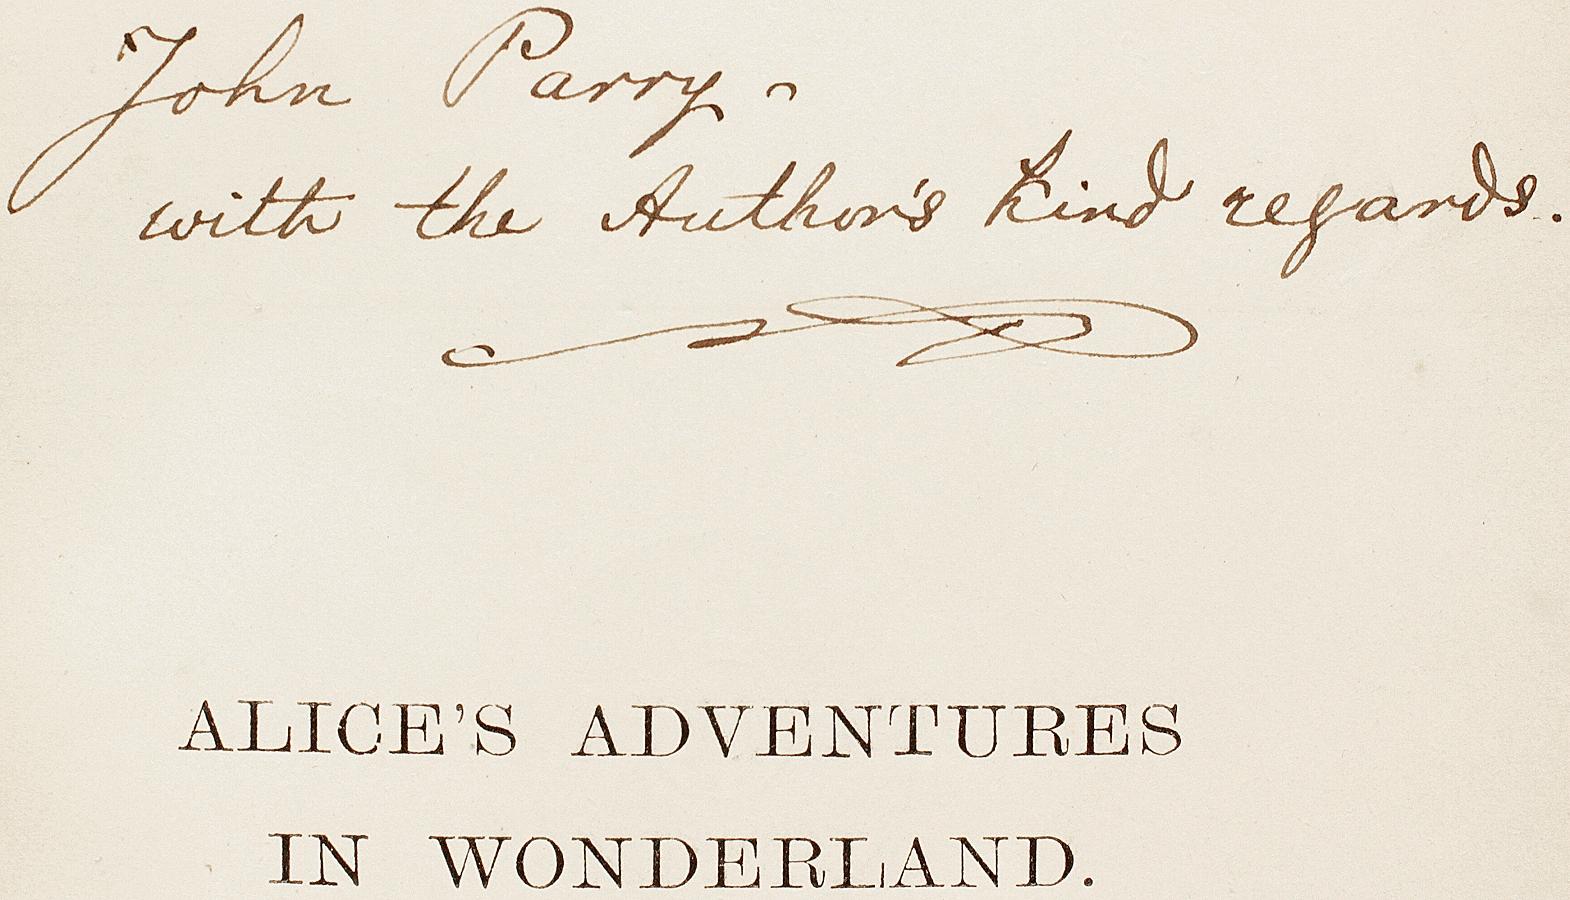 John Parry -
with the Author's kind regards.
ALICE'S ADVENTURES
IN WONDERLAND.